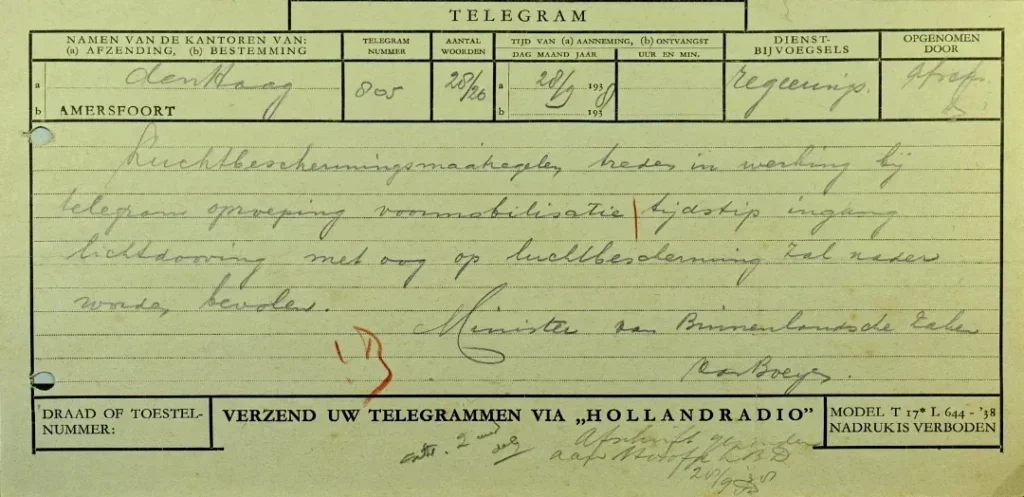 TELEGRAM
NAMEN VAN DE KANTOREN VAN:
(a) AFZENDING, (b) BESTEMMING
TELEGRAM
NUMMER
AANTAL
WOORDEN
TIJD VAN (a) AANNEMING, (b) ONTVANGST
DAG MAAND JAAR
UUR EN MIN.
DIENST-
BIJVOEGSELS
OPGENOMEN
DOOR
a den Haag 805 28/26 a 28/9 1938 regeerings.
b AMERSFOORT b 193
Luchtbeschermingsmaatregelen treden in werking bij
telegram oproeping voormobilisatie | tijdstip ingang
lichtdooving met oog op luchtbescherming zal nader
worden bevolen.
Minister van Binnenlandsche Zaken
van Boeyen.
DRAAD OF TOESTEL-
NUMMER:
VERZEND UW TELEGRAMMEN VIA „HOLLANDRADIO”
MODEL T 17* L 644 - '38
NADRUK IS VERBODEN
Afschrift gezonden
aan Hoofd LBD